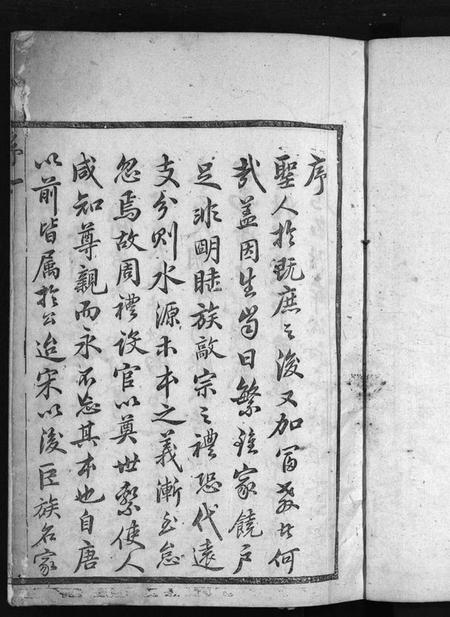 序
聖人於既庶之後又加富教者何
哉蓋因生齒日繁雖家饒戶
足非明睦族敬宗之禮恐代遠
支分則水源木本之義漸至怠
忽焉故周禮設官以奠世繫使人
咸知尊親而永不忘其本也自唐
以前皆属於公迨宋以後臣族名家
序 一